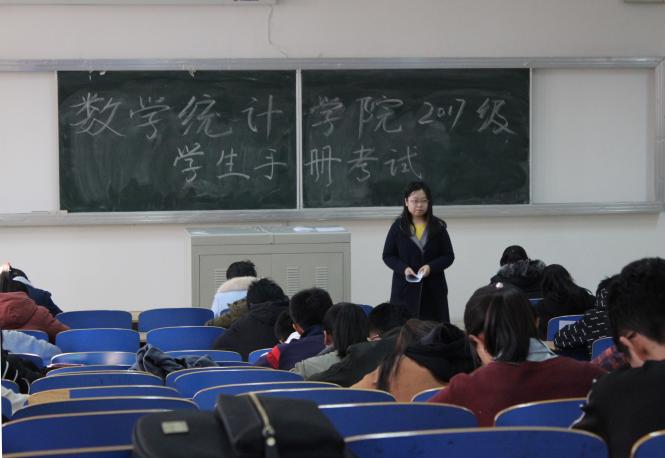 数学统计学院2017级
学生手册考试